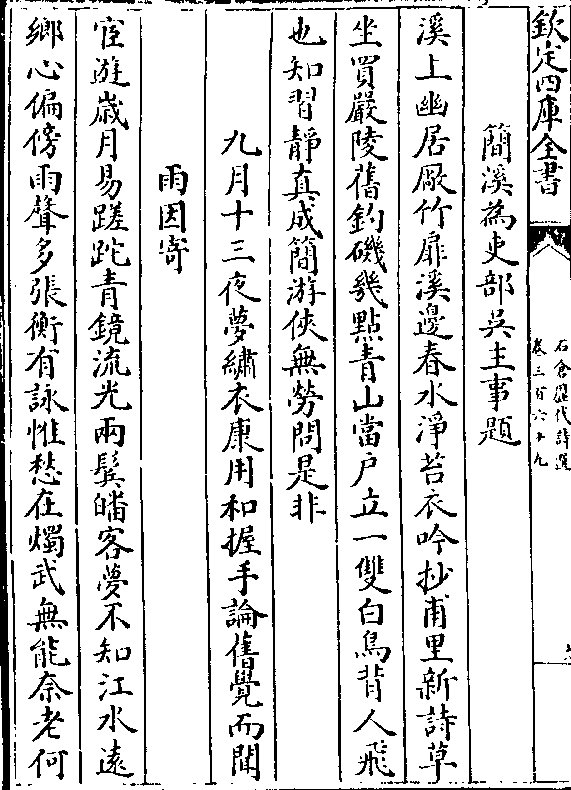 欽定四庫全書
石倉歷代詩選
卷三百六十九
簡溪為吏部吳主事題
溪上幽居厰竹扉溪邊春水淨苔衣吟抄甫里新詩草
坐買嚴陵舊釣磯幾點青山當户立一雙白鳥背人飛
也知習靜真成簡游俠無勞問是非
九月十三夜夢繡衣康用和握手論舊覺而聞
雨因寄
宦遊歳月易蹉跎青鏡流光兩鬢皤客夢不知江水遠
鄉心偏傍雨聲多張衡有詠惟愁在燭武無能奈老何